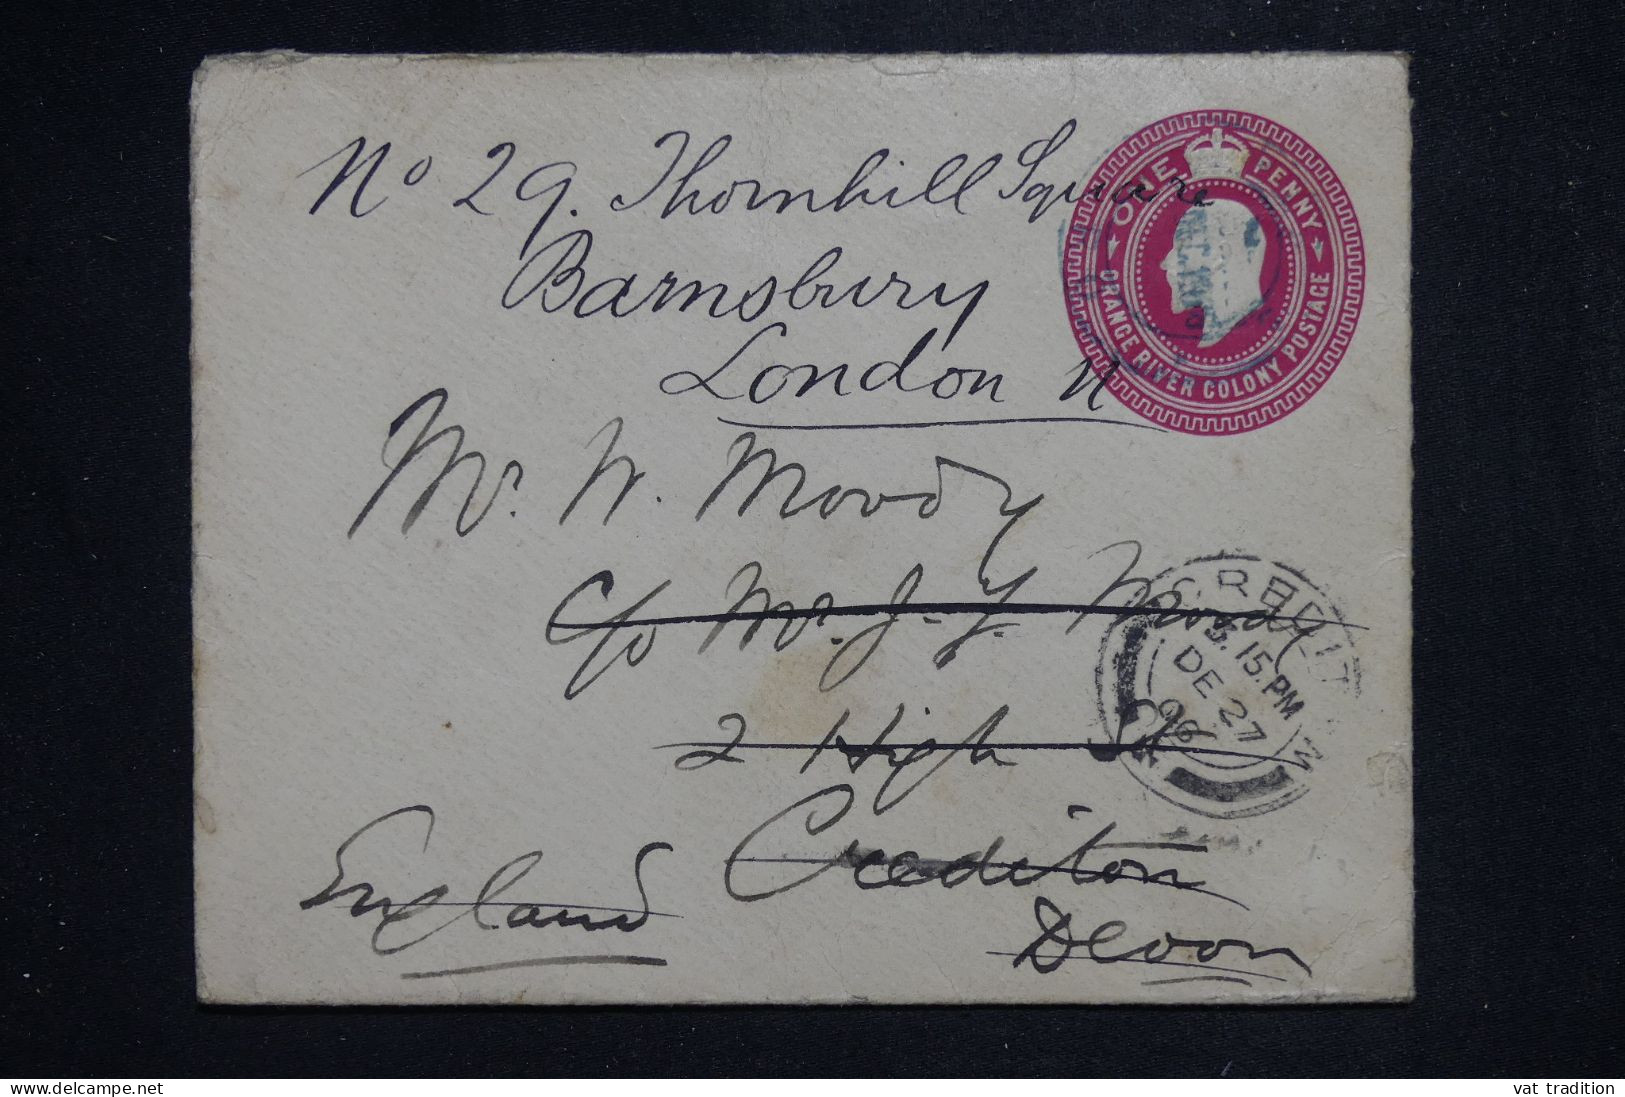 No 29. Thornhill Square
Barnsbury
London N
ONE PENNY
ORANGE RIVER COLONY POSTAGE
Mr. W. Moody
c/o Mr. J. Y. Moody
2 High St.
Crediton
Devon
England
CREDITON
3.15.PM
DE 27
06
vat tradition